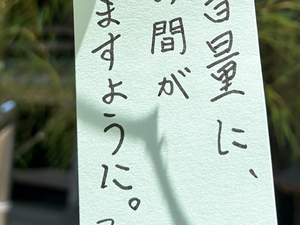 量に、
の間が
ますように。